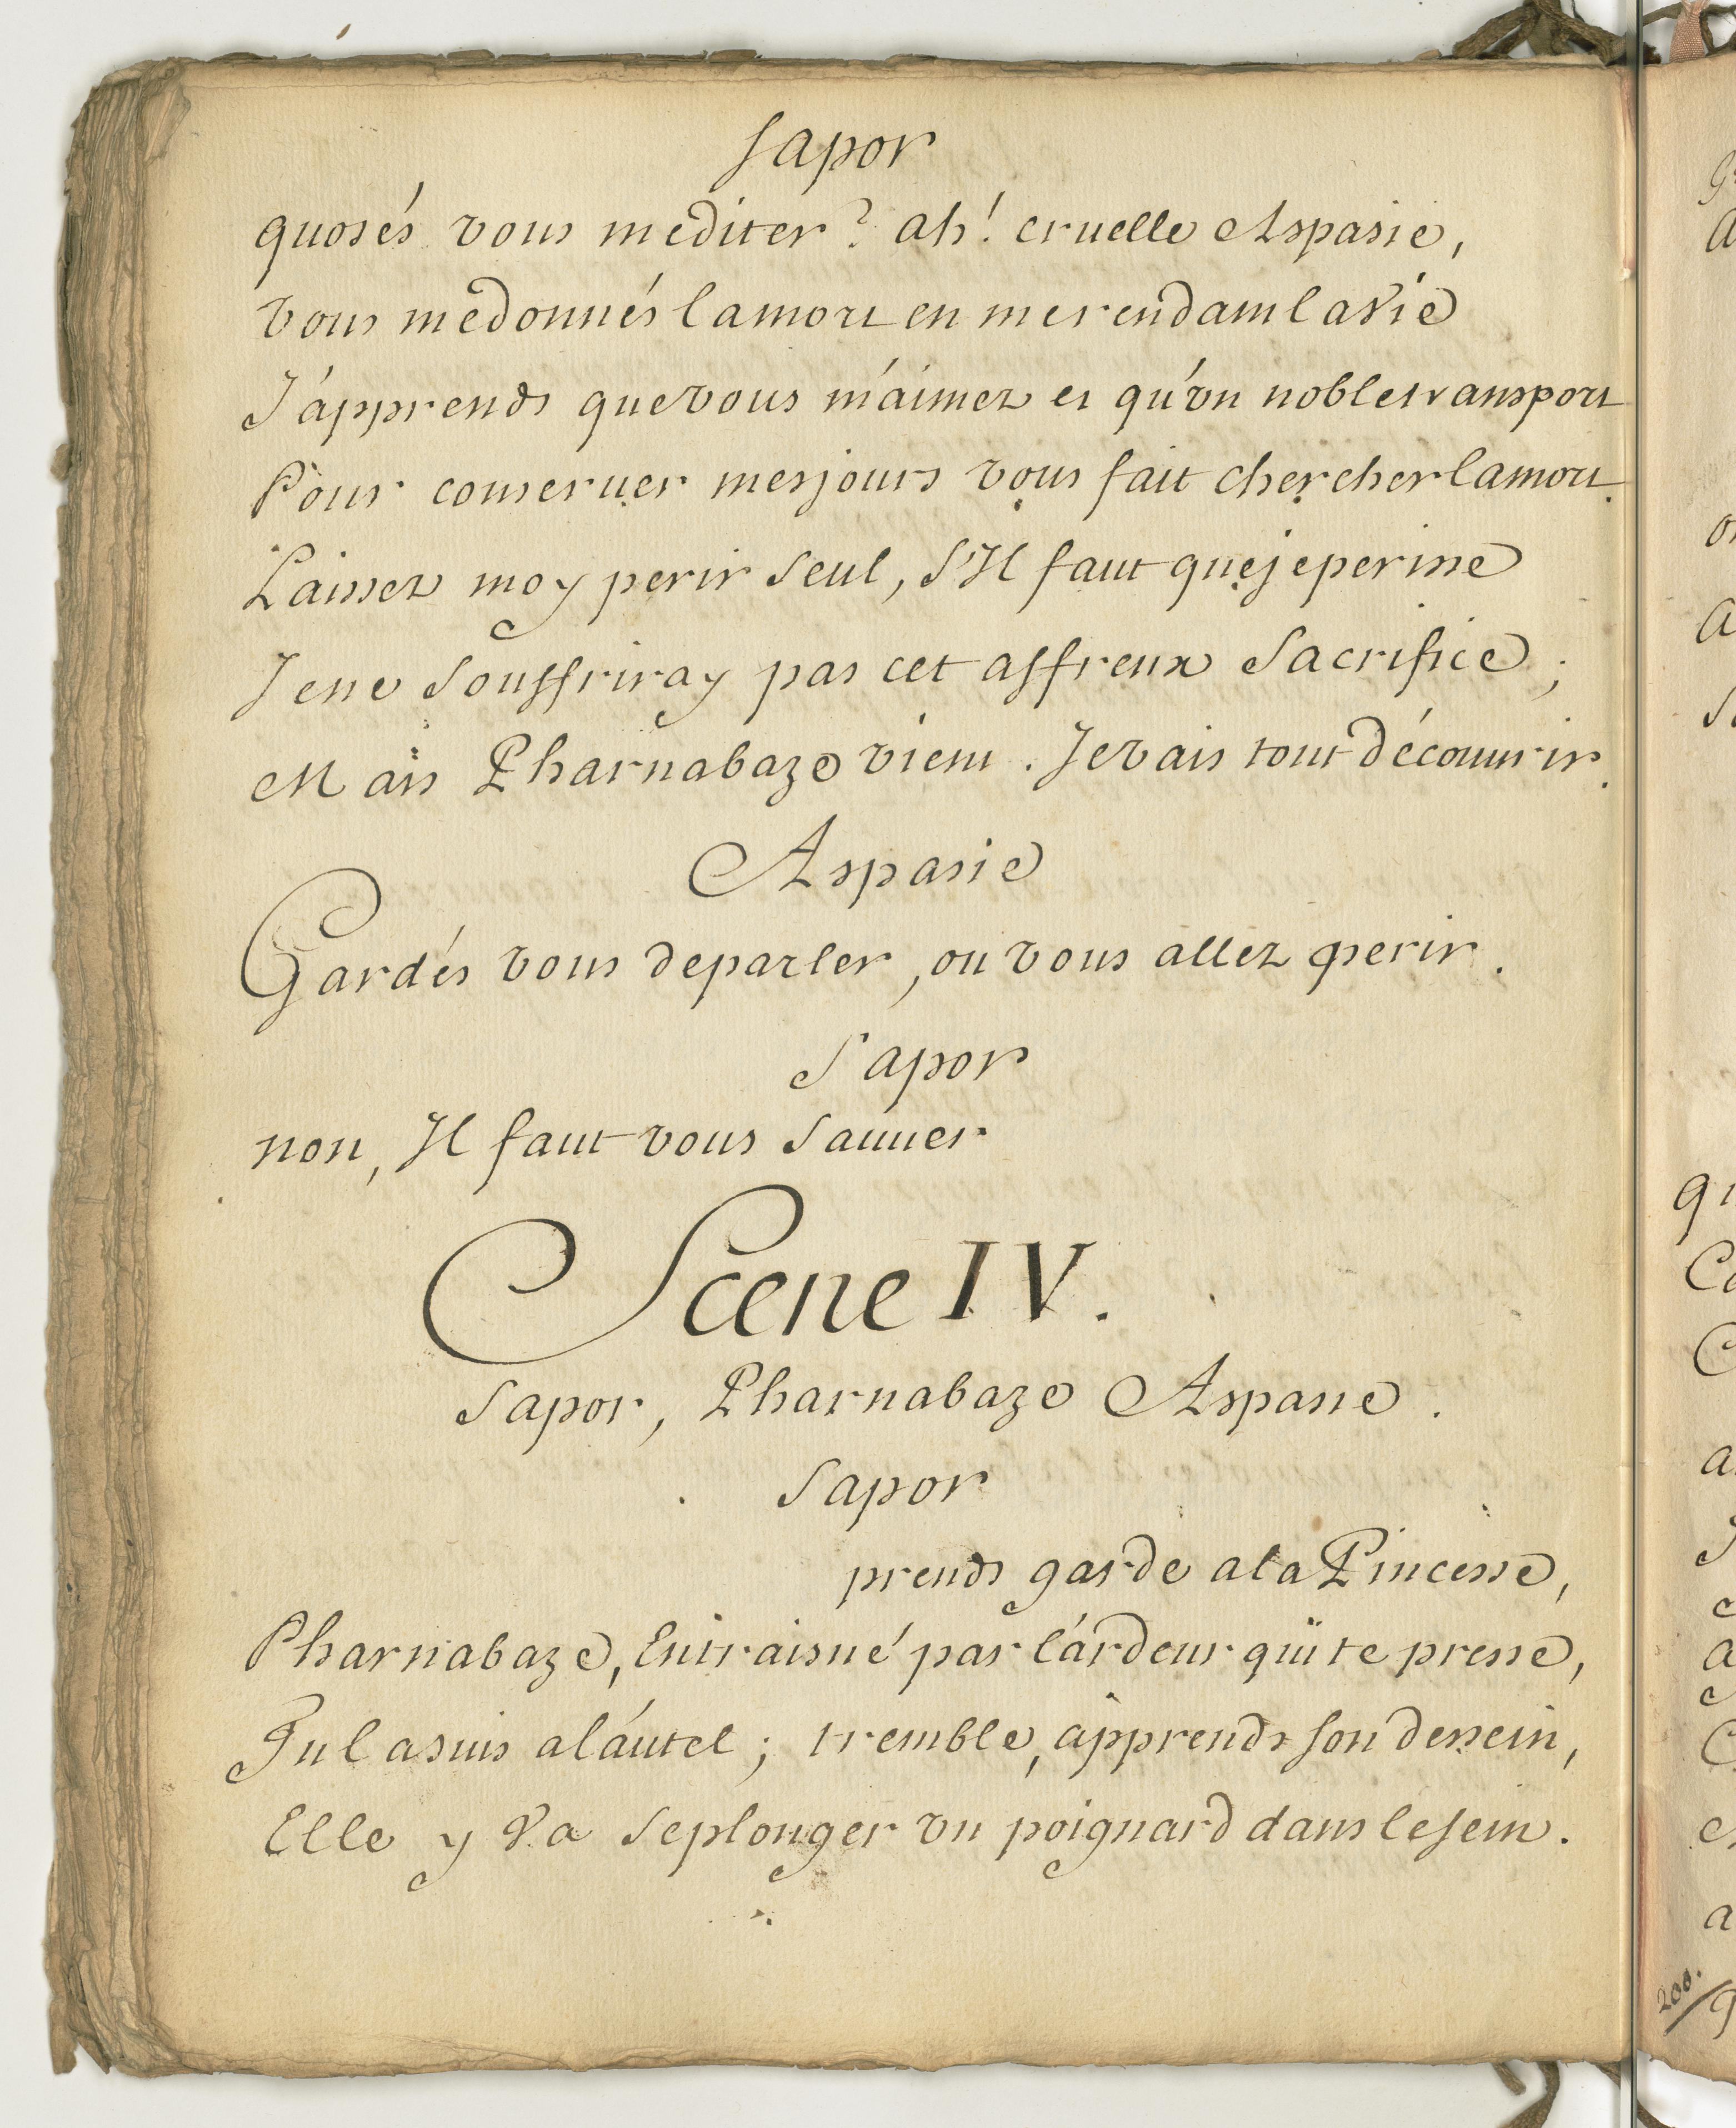 Sapor
quosés vous mediter? ah! cruelle Aspasie,
vous medonnés lamort en merendant lavie
J'apprends quevous m'aimez et qu'vn nobletransport
Pour conseruer mesjours vous fait chercherlamort.
Laissez moy perir Seul, S'Il faut quejeperisse
Jene Souffriray pas cet affreux Sacrifice;
Mais Pharnabaze vient. Jevais tout découurir.
Aspasie
Gardés vous deparler, ou vous allez perir.
Sapor
non, Il faut vous Sauuer
Scene IV.
Sapor, Pharnabaze Aspasie.
Sapor
prends garde ala Pincesse,
Pharnabaze, Entraisné par l'ardeur qui te presse,
Tu lasuis al'autel; tremble, apprends son dessein,
Elle y Va Seplonger vn poignard dans lesein.
200.